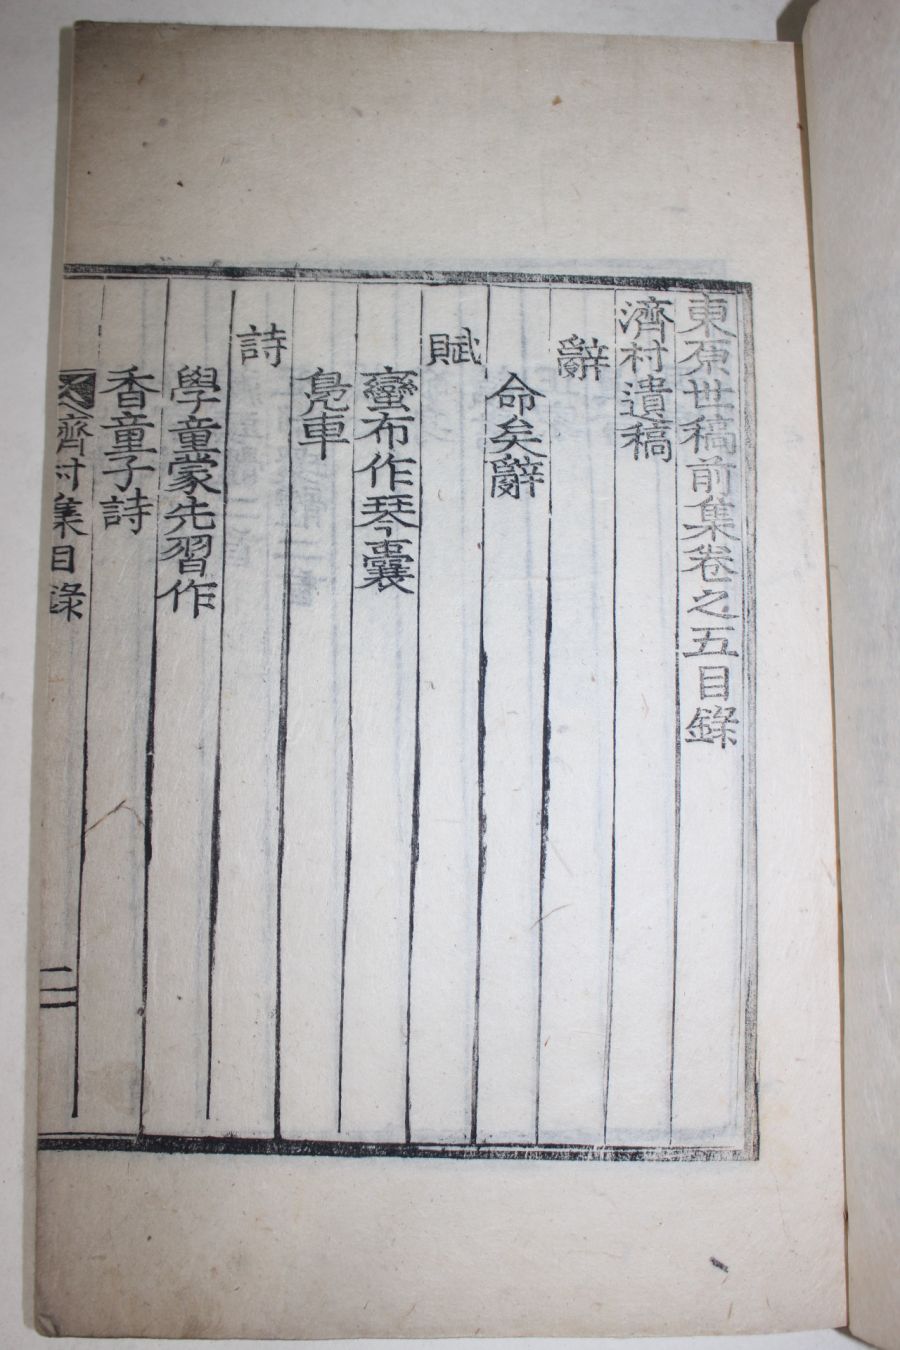 東原世稿前集卷之五目錄
濟村遺稿
辭
命矣辭
賦
蠻布作琴囊
鳧車
詩
學童蒙先習作
香童子詩
濟村集目錄
二